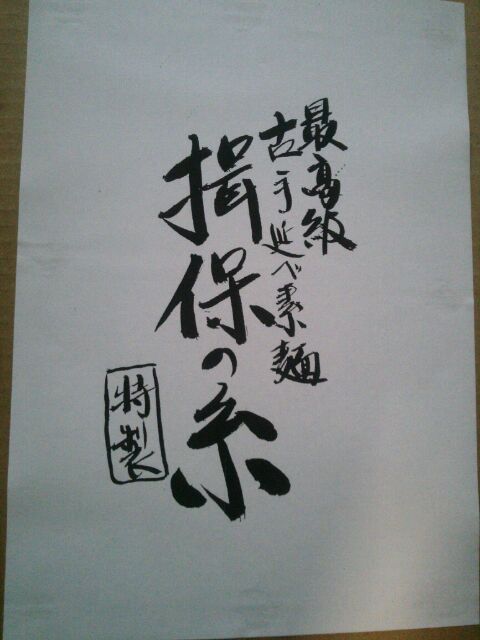 最高級
古手延べ素麺
揖保の糸
特製